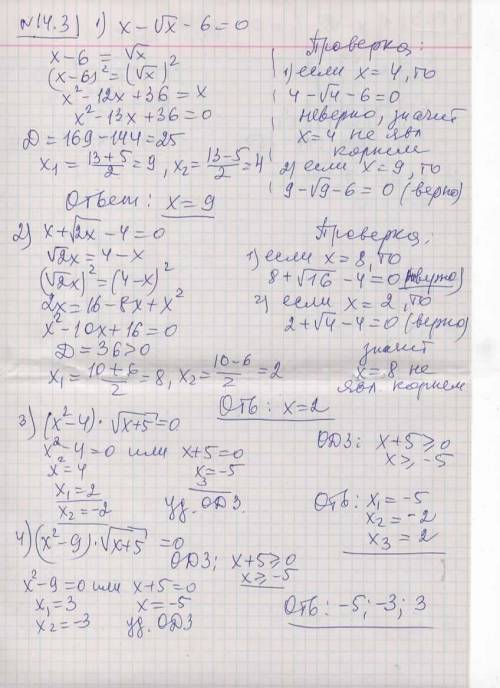 №14.3) 1) x - √x - 6 = 0
x - 6 = √x
(x-6)² = (√x)²
x² - 12x + 36 = x
x² - 13x + 36 = 0
D = 169 - 144 = 25
x₁ = (13+5)/2 = 9, x₂ = (13-5)/2 = 4
Ответ: x = 9
Проверка:
1) если x = 4, то
4 - √4 - 6 = 0
неверно, значит
x = 4 не явл
корнем
2) если x = 9, то
9 - √9 - 6 = 0 (верно)
2) x + √2x - 4 = 0
√2x = 4 - x
(√2x)² = (4-x)²
2x = 16 - 8x + x²
x² - 10x + 16 = 0
D = 36 > 0
x₁ = (10+6)/2 = 8, x₂ = (10-6)/2 = 2
Проверка:
1) если x = 8, то
8 + √16 - 4 = 0
2) если x = 2, то
2 + √4 - 4 = 0 (верно)
значит
x = 8 не
явл корнем
Отв: x = 2
3) (x² - 4) · √x+5 = 0
x² - 4 = 0 или x + 5 = 0
x² = 4 x = -5
x₁ = 2 3
x₂ = -2 уд. ОДЗ.
ОДЗ: x + 5 ≥ 0
x ≥ -5
Отв: x₁ = -5
x₂ = -2
x₃ = 2
4) (x² - 9) · √x+5 = 0
ОДЗ: x + 5 ≥ 0
x ≥ -5
x² - 9 = 0 или x + 5 = 0
x₁ = 3 x = -5
x₂ = -3 уд. ОДЗ
Отв: -5; -3; 3